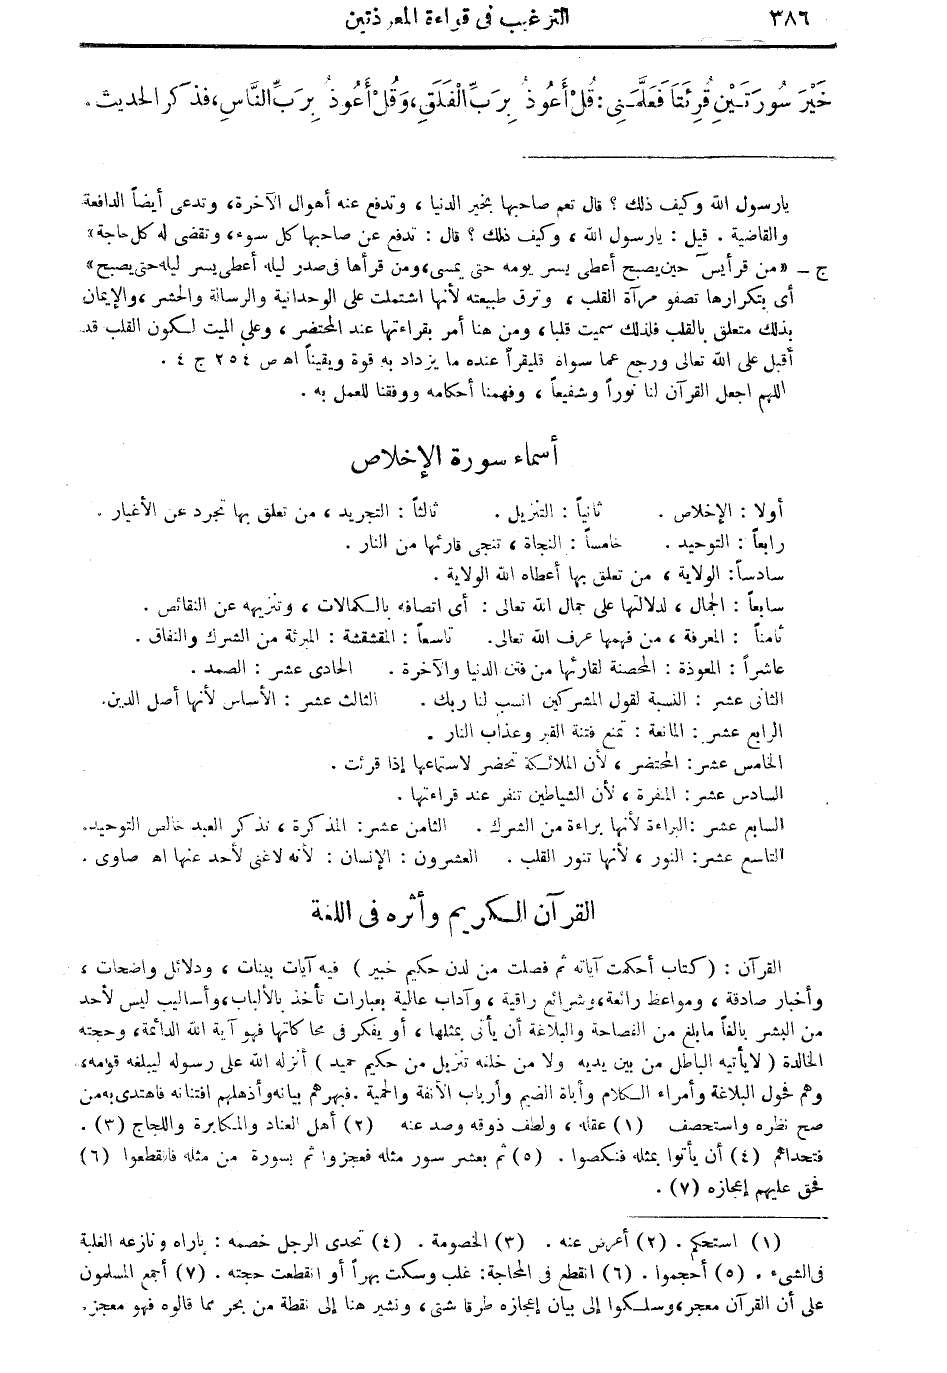 ٣٨٦
الترغيب فى قراءة المعوذتين
خَيْرَ سُورَتَيْنِ قُرِئَتَا فَعَلَّمَنِى : قُلْ أَعُوذُ بِرَبِّ الْفَلَقِ، وَقُلْ أَعُوذُ بِرَبِّ النَّاسِ، فذكر الحديث.
يارسول الله وكيف ذلك ؟ قال تعم صاحبها بخير الدنيا ، وتدفع عنه أهوال الآخرة، وتدعى أيضاً الدافعة
والقاضية . قيل : يارسول الله ، وكيف ذلك ؟ قال : تدفع عن صاحبها كل سوء، وتقضى له كل حاجة»
ج ــ «من قرأ يس حين يصبح أعطى يسر يومه حتى يمسى، ومن قرأها فى صدر ليله أعطى يسر ليله حتى يصبح»
أى بتكرارها تصفو مرآة القلب ، وترق طبيعته لأنها اشتملت على الوحدانية والرسالة والحشر ، والإيمان
بذلك متعلق بالقلب فلذلك سميت قلبا ، ومن هنا أمر بقراءتها عند المحتضر ، وعلى الميت لكون القلب قد
أقبل على الله تعالى ورجع عما سواه فليقرأ عنده ما يزداد به قوة ويقيناً اهـ ص ٢٥٤ ج ٤ .
اللهم اجعل القرآن لنا نوراً وشفيعاً ، وفهمنا أحكامه ووفقنا للعمل به .
أسماء سورة الإخلاص
أولا : الإخلاص . ثانياً : التنزيل . ثالثاً : التجريد ، من تعلق بها تجرد عن الأغيار .
رابعاً : التوحيد . خامساً : النجاة ، تنجى قارئها من النار .
سادساً : الولاية ، من تعلق بها أعطاه الله الولاية .
سابعاً : الجمال ، لدلالتها على جمال الله تعالى : أى اتصافه بالكمالات ، وتنزيهه عن النقائص .
ثامناً : المعرفة ، من فهمها عرف الله تعالى. تاسعاً : المقشقشة : المبرئة من الشرك والنفاق .
عاشراً : المعوذة : المحصنة لقارئها من فتن الدنيا والآخرة . الحادى عشر : الصمد .
الثانى عشر : النسبة لقول المشركين انسب لنا ربك . الثالث عشر : الأساس لأنها أصل الدين.
الرابع عشر : المانعة : تمنع فتنة القبر وعذاب النار .
الخامس عشر : المحتضر ، لأن الملائكة تحضر لاستماعها إذا قرئت .
السادس عشر : المنفرة ، لأن الشياطين تنفر عند قراءتها .
السابع عشر : البراءة لأنها براءة من الشرك . الثامن عشر : المذكرة ، تذكر العبد خالص التوحيد.
التاسع عشر : النور ، لأنها تنور القلب . العشرون : الإنسان : لأنه لاغنى لأحد عنها اهـ صاوى .
القرآن الكريم وأثره فى اللغة
القرآن : ( كتاب أحكمت آياته ثم فصلت من لدن حكيم خبير ) فيه آيات بينات ، ودلائل واضحات ،
وأخبار صادقة ، ومواعظ رائعة، وشرائع راقية ، وآداب عالية بعبارات تأخذ بالألباب، وأساليب ليس لأحد
من البشر بالغاً مابلغ من الفصاحة والبلاغة أن يأتى بمثلها ، أو يفكر فى محاكاتها فهو آية الله الدائمة، وحجته
الخالدة ( لايأتيه الباطل من بين يديه ولا من خلفه تنزيل من حكيم حميد ) أنزله الله على رسوله ليبلغه قومه،
وهم فحول البلاغة وأمراء الكلام وأباة الضيم وأرباب الأنفة والحمية . فبهرهم بيانه وأذهلهم افتنانه فاهتدى به من
صح نظره واستحصف (١) عقله ، ولطف ذوقه وصد عنه (٢) أهل العناد والمكابرة واللجاج (٣) .
فتحداهم (٤) أن يأتوا بمثله فنكصوا . (٥) ثم بعشر سور مثله فعجزوا ثم بسورة من مثله فانقطعوا (٦)
فحق عليهم إعجازه (٧) .
(١) استحكم . (٢) أعرض عنه . (٣) الخصومة . (٤) تحدى الرجل خصمه : باراه ونازعه الغلبة
فى الشىء . (٥) أحجموا . (٦) انقطع فى المحاجة: غلب وسكت بهراً أو انقطعت حجته . (٧) أجمع المسلمون
على أن القرآن معجز، وسلكوا إلى بيان إعجازه طرقا شتى ، ونشير هنا إلى نقطة من بحر مما قالوه فهو معجز.